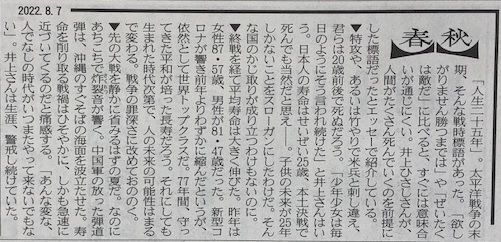 2022.8.7
春秋
「人生二十五年」。太平洋戦争の末
期、そんな戦時標語があった。「欲し
がりません勝つまでは」や「ぜいたく
は敵だ」に比べると、すぐには意味合
いが通じにくい。井上ひさしさんが、
人間がたくさん死んでいくのを前提に
した標語だったとエッセーで紹介している。
▼特攻や、あるいは竹やりで米兵と刺し違え、
君らは20歳前後で死ぬだろう。「少年少女は毎
日のようにそう言われ続けた」と井上さんはい
う。日本人の寿命はせいぜい25歳、本土決戦で
死んでも当然だと思え――。子供の未来が25年
しかないことをスローガンにしたわけだ。そん
な国のかじ取りが成り立つわけもないのに。
▼終戦を経て平均寿命は大きく伸びた。昨年は
女性87・57歳、男性が81・47歳だった。新型コ
ロナが響き前年よりわずかに縮んだというが、
依然として世界トップクラスだ。77年間、守っ
てきた平和が培った長寿だろう。それにしても
生まれた時代次第で、人の未来の可能性はまる
で変わる。戦争の罪深さに改めておののく。
▼先の大戦を静かに省みるはずの夏だ。なのに
あちこちで炸裂音が響く。中国軍の放った弾道
弾は、沖縄のすぐそばの海面を波立たせた。寿
命を削り取る戦禍はひそやかに、しかも急速に
近づいてくるのだと痛感する。「あんな変な、
人でなしの時代がいつまたやって来ないでもな
い」。井上さんは生涯、警戒し続けていた。